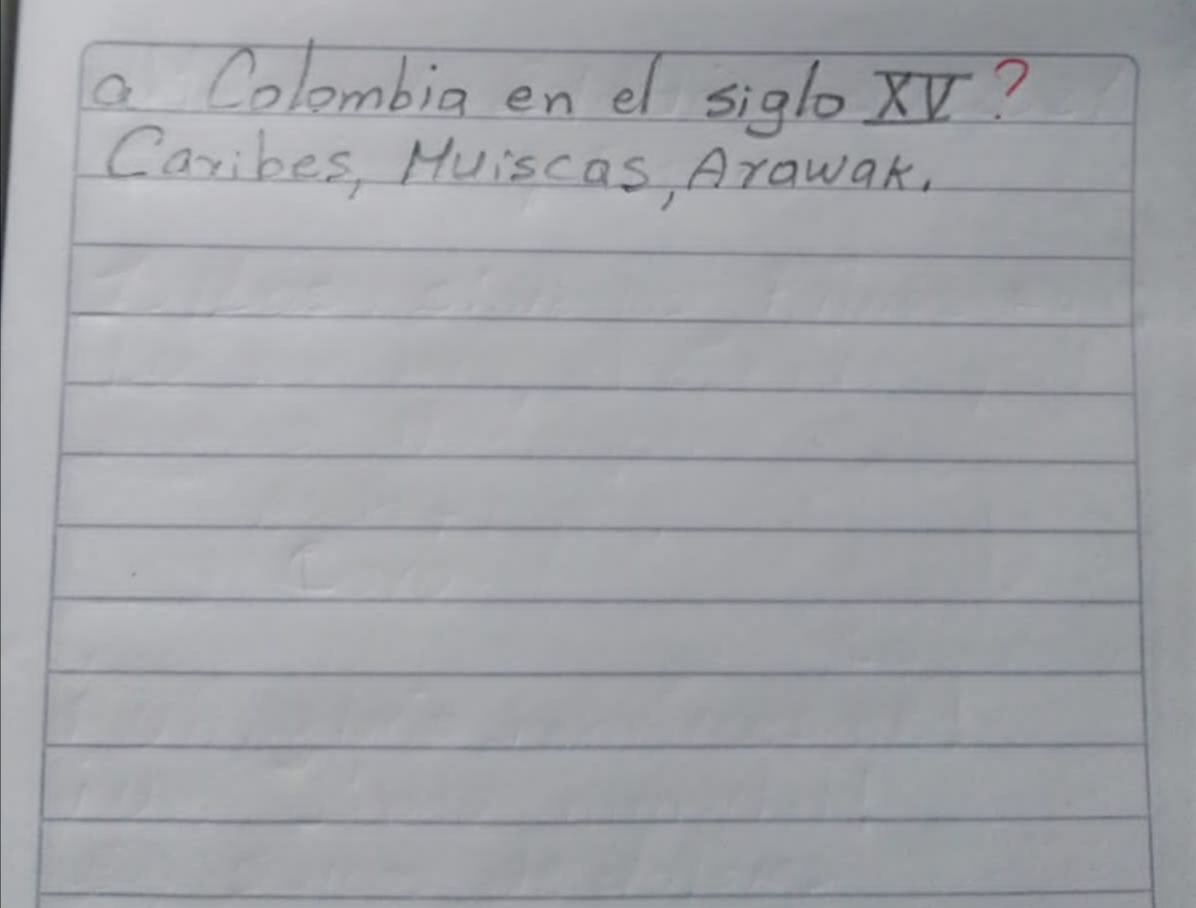 a Colombia en el siglo XV?
Caribes, Muiscas, Arawak.